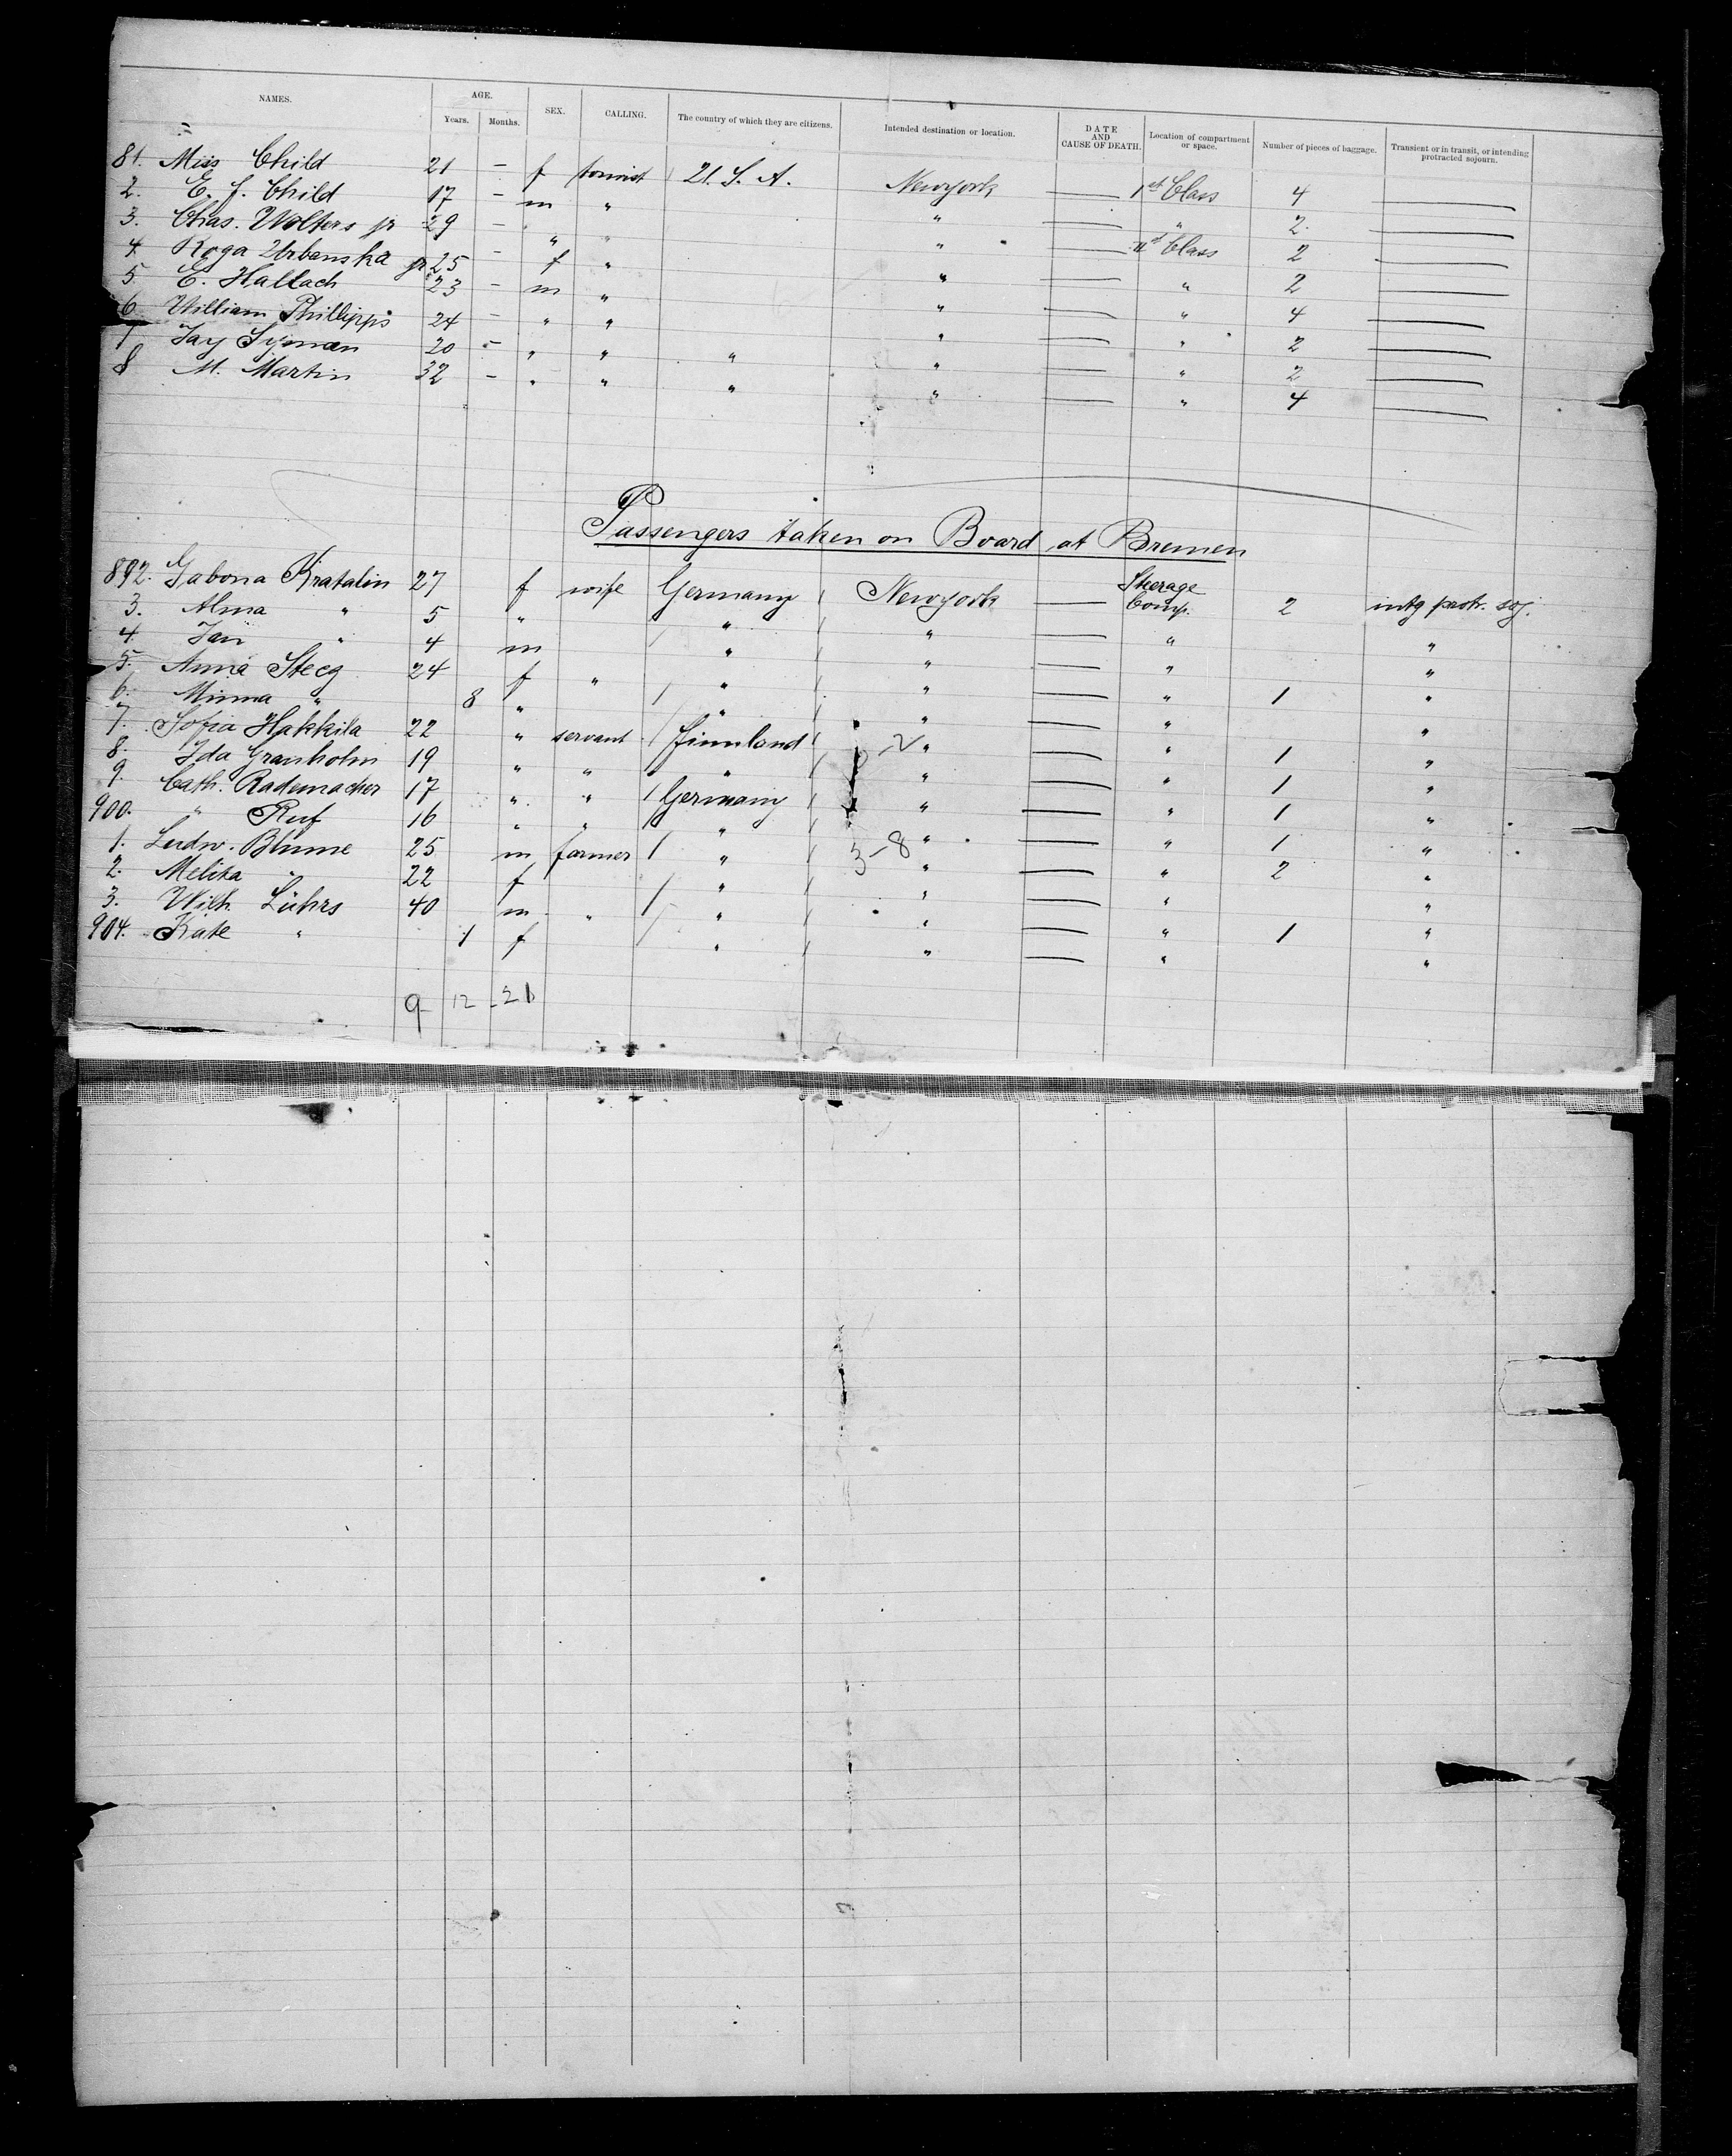 NAMES. AGE. Years. Months. SEX. CALLING. The country of which they are citizens. Intended destination or location. DATE AND CAUSE OF DEATH. Location of compartment or space. Number of pieces of baggage. Transient or in transit, or intending protracted sojourn.
81. Miss Child 21 – f tourist U.S.A. Newyork — 1st Class 4 —
2. E. J. Child 17 – m " " — " 2 —
3. Chas. Wolters jr 29 – " " " — IId Class 2 —
4. Roga Urbanska 25 – f " " — " 2 —
5 E. Hallach 23 – m " " — " 4 —
6 William Phillipps 24 – " " " — " 2 —
7 Jay Syman 20 – " " " " — " 2 —
8 M. Martin 32 – " " " " — " 4 —
Passengers taken on Board at Bremen
892. Gabona Kratalin 27 f wife Germany Newyork — Steerage Comp. 2 intg protr. soj.
3. Alma " 5 " " " — " "
4. Jan " 4 m " " — " "
5. Anna Steeg 24 f " " " — " 1 "
6. Minna " 8 " " " — " "
7. Sofia Hakkila 22 " servant Finnland " — " 1 "
8. Ida Granholm 19 " " " " — " 1 "
9. Cath. Rademacher 17 " " Germany " — " 1 "
900. " Ruf 16 " " " " — " 1 "
1. Ludw. Blume 25 m farmer " 3-8 " — " 2 "
2. Melita " 22 f " " — " "
3. Wilh. Lührs 40 m " " " — " 1 "
904. Kate " 1 f " " — " "
9 12 - 21